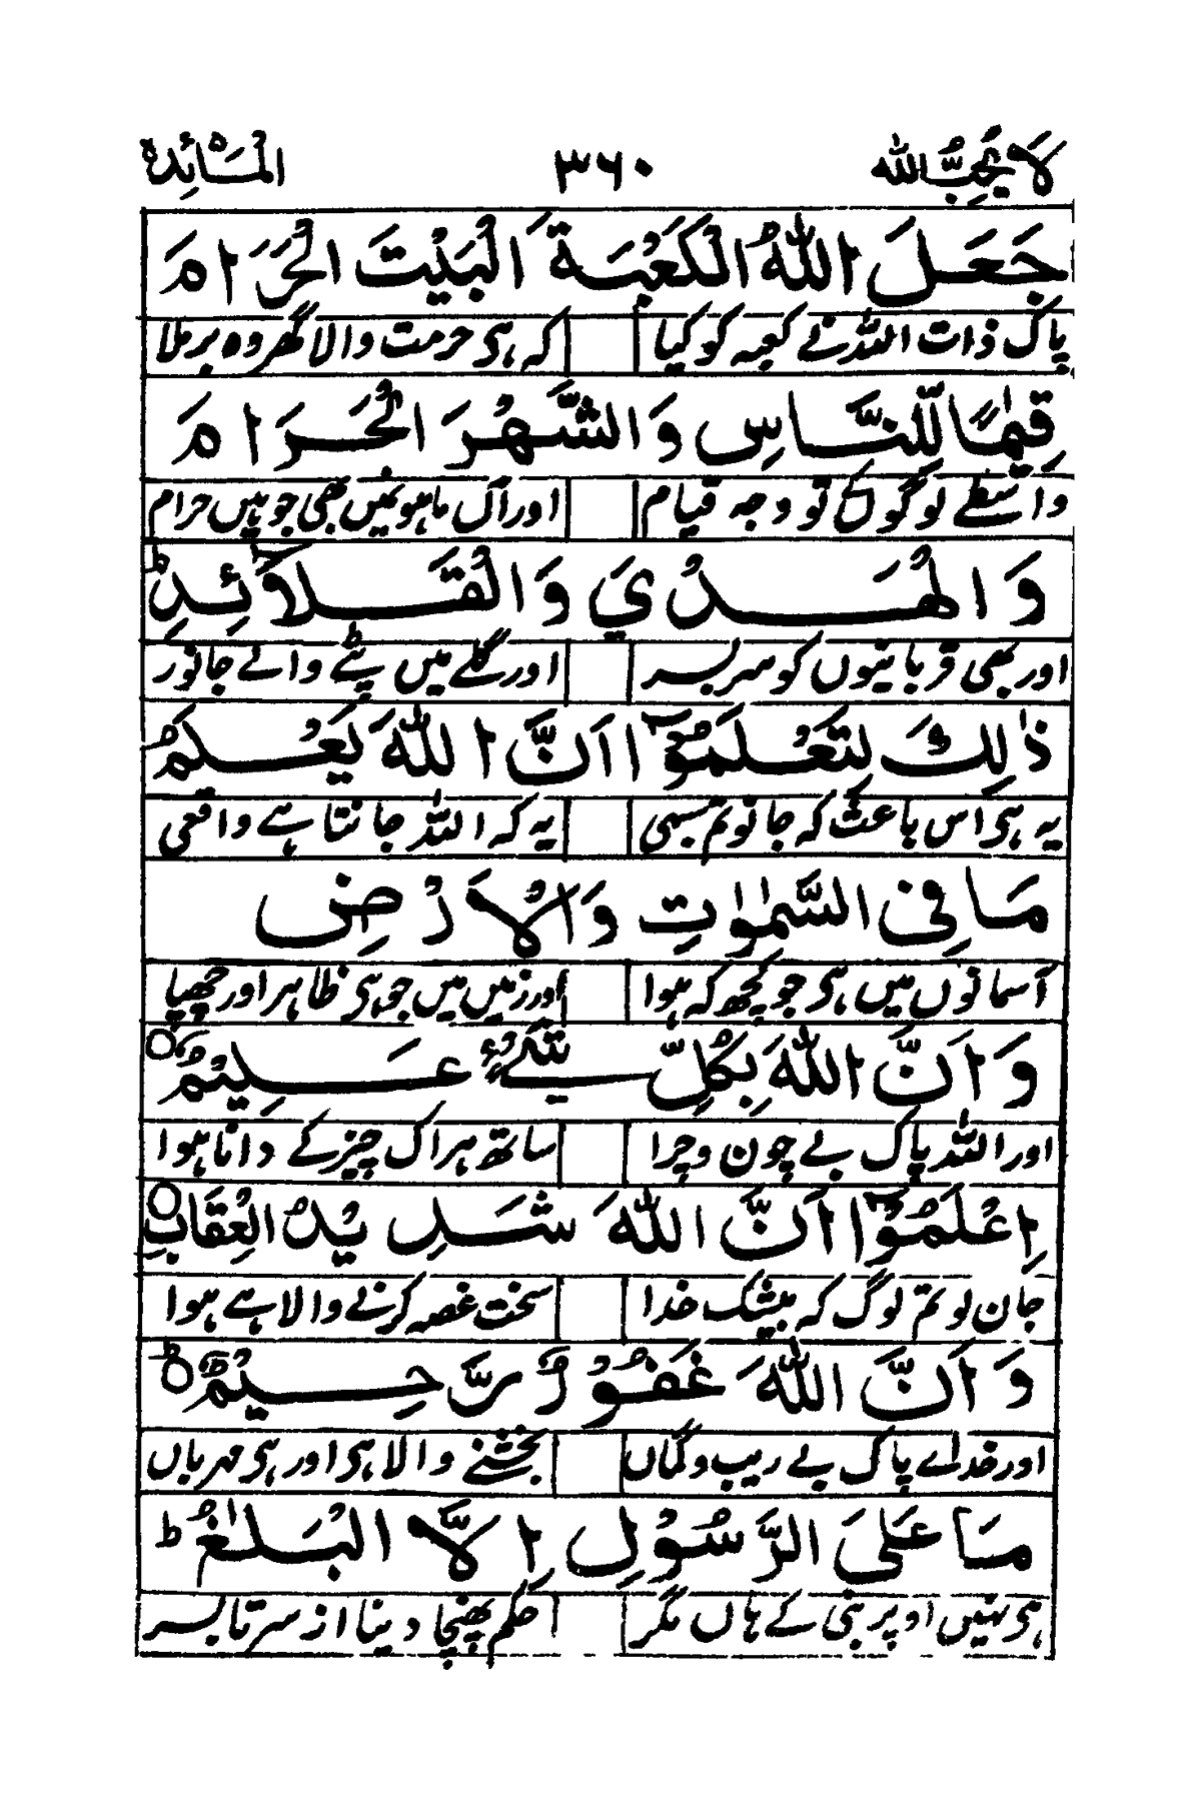 لَا يُحِبُّ اللّٰه ۳۶۰ الْمَآئِدة
جَعَلَ اللّٰهُ الْكَعْبَةَ الْبَيْتَ الْحَرَامَ
پاک ذات اللہ نے کعبہ کو کیا کہ ہی حرمت والا گھر وہ برملا
قِيٰمًا لِّلنَّاسِ وَالشَّهْرَ الْحَرَامَ
واسطے لوگوں کے تو وجہ قیام اور آں ماہونمیں بھی جو ہیں حرام
وَالْهَدْيَ وَالْقَلَآئِدَ ؕ
اور بھی قربانیوں کو سربسر اور گلے میں پٹے والے جانور
ذٰلِكَ لِتَعْلَمُوْٓا اَنَّ اللّٰهَ يَعْلَمُ
یہ ہی اس باعث کہ جانو تم سبھی یہ کہ اللہ جانتا ہے واقعی
مَا فِي السَّمٰوٰتِ وَالْاَرْضِ
آسمانوں میں ہی جو کچھ کہ ہوا اور زمیں میں جو ہی ظاہر اور چھپا
وَاَنَّ اللّٰهَ بِكُلِّ شَيْءٍ عَلِيْمٌ ○
اور اللہ پاک بے چون و چرا ساتھ ہر اک چیز کے دانا ہوا
اِعْلَمُوْٓا اَنَّ اللّٰهَ شَدِيْدُ الْعِقَابِ ○
جان لو تم لوگ کہ بیشک خدا سخت غصہ کرنے والا ہے ہوا
وَاَنَّ اللّٰهَ غَفُوْرٌ رَّحِيْمٌ ○ؕ
اور خداے پاک بے ریب و گماں بخشنے والا ہی اور ہی مہرباں
مَا عَلَى الرَّسُوْلِ اِلَّا الْبَلٰغُ ؕ
ہی نہیں اوپر نبی کے ہاں مگر حکم پھنچا دینا از سر تا بسر